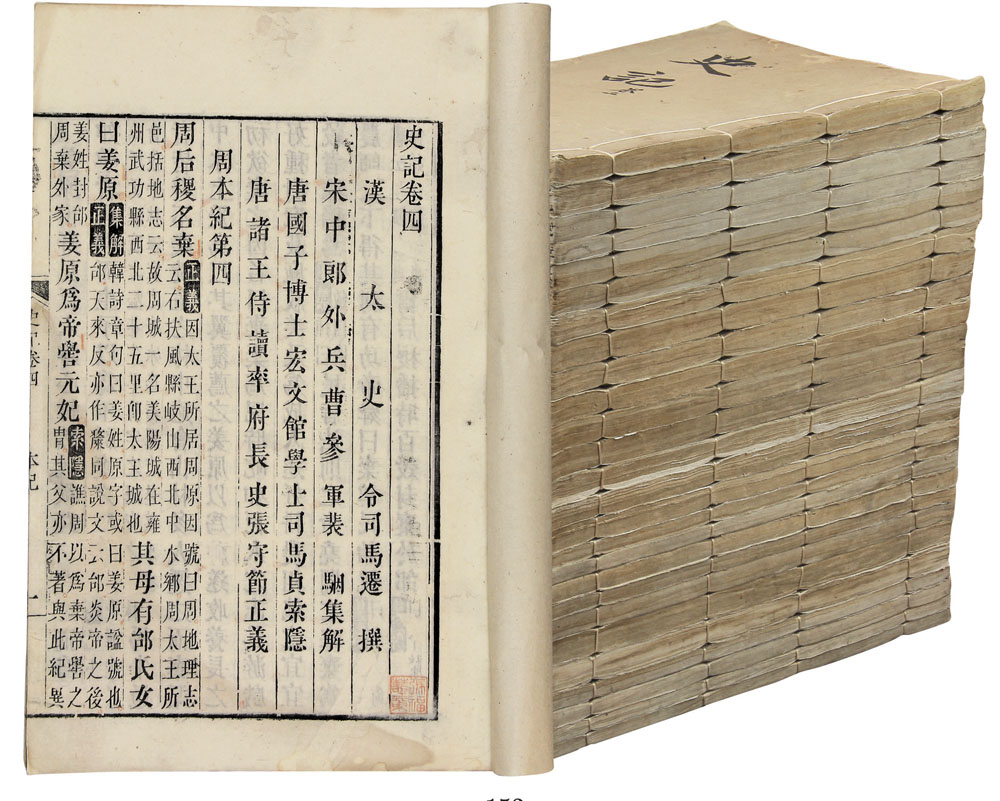 史記卷四
漢太史令司馬遷撰
宋中郎外兵曹參軍裴駰集解
唐國子博士宏文館學士司馬貞索隱
唐諸王侍讀率府長史張守節正義
周本紀第四
周后稷名棄正義因太王所居周原因號曰周地理志云右扶風縣岐山西北中水鄉周太王所
邑括地志云故周城一名美陽城在雍州武功縣西北二十五里卽太王城也其母有邰氏女
曰姜原集解韓詩章句曰姜姓原字或曰姜原諡號也正義邰天來反亦作斄同說文云邰炎帝之後
姜姓封邰周棄外家姜原爲帝嚳元妃索隱譙周以爲棄帝嚳之冑其父亦不著與此紀異
史記卷四 本紀 一
史記